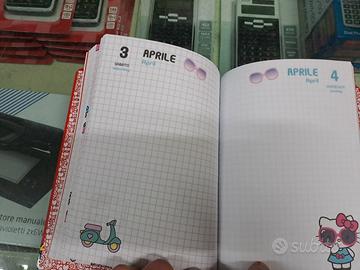 3
APRILE
April
SABATO
APRILE
April
4
DOMENICA
tore manual
violetti 2x6W
subito